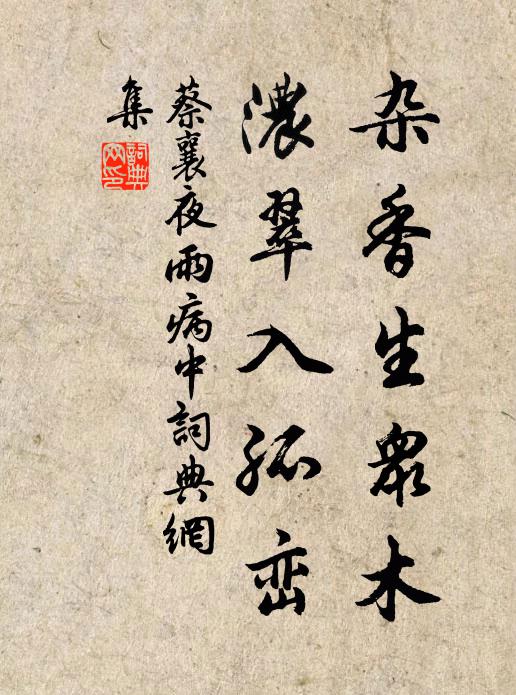 杂香生眾木
濃翠入孤峦
蔡襄夜雨病中詞典網
集
詞典網印